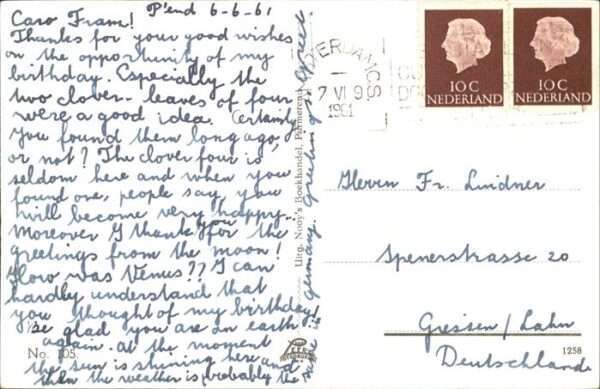 P'end 6-6-61
Caro Fram!
Thanks for your good wishes
on the opportunity of my
birthday. Especially the
two clover-leaves of four
were a good idea. Certainly
you found them long ago,
or not? The clover four is
seldom here and when you
found one, people say, you
will become very happy...
Moreover I thank you for the
greetings from the moon!
How was Venus?? I can
hardly understand that
you thought of my birthday!
Be glad you are on earth
again. At the moment
the sun is shining here and
then the weather is probably the
same in Germany. Greetings
Uitg. Nooy's Boekhandel, Purmerend
No. 105
7 VI 9
1961
10 C
NEDERLAND
10 C
NEDERLAND
Herrn Fr. Lindner
Spenerstrasse 20
Giessen/Lahn
Deutschland
1258